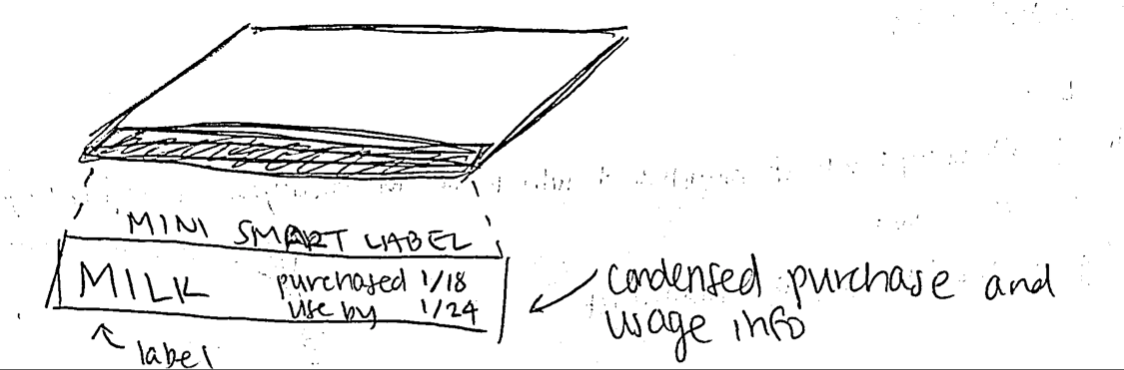 MINI SMART LABEL
MILK purchased 1/18
use by 1/24
label
condensed purchase and
usage info